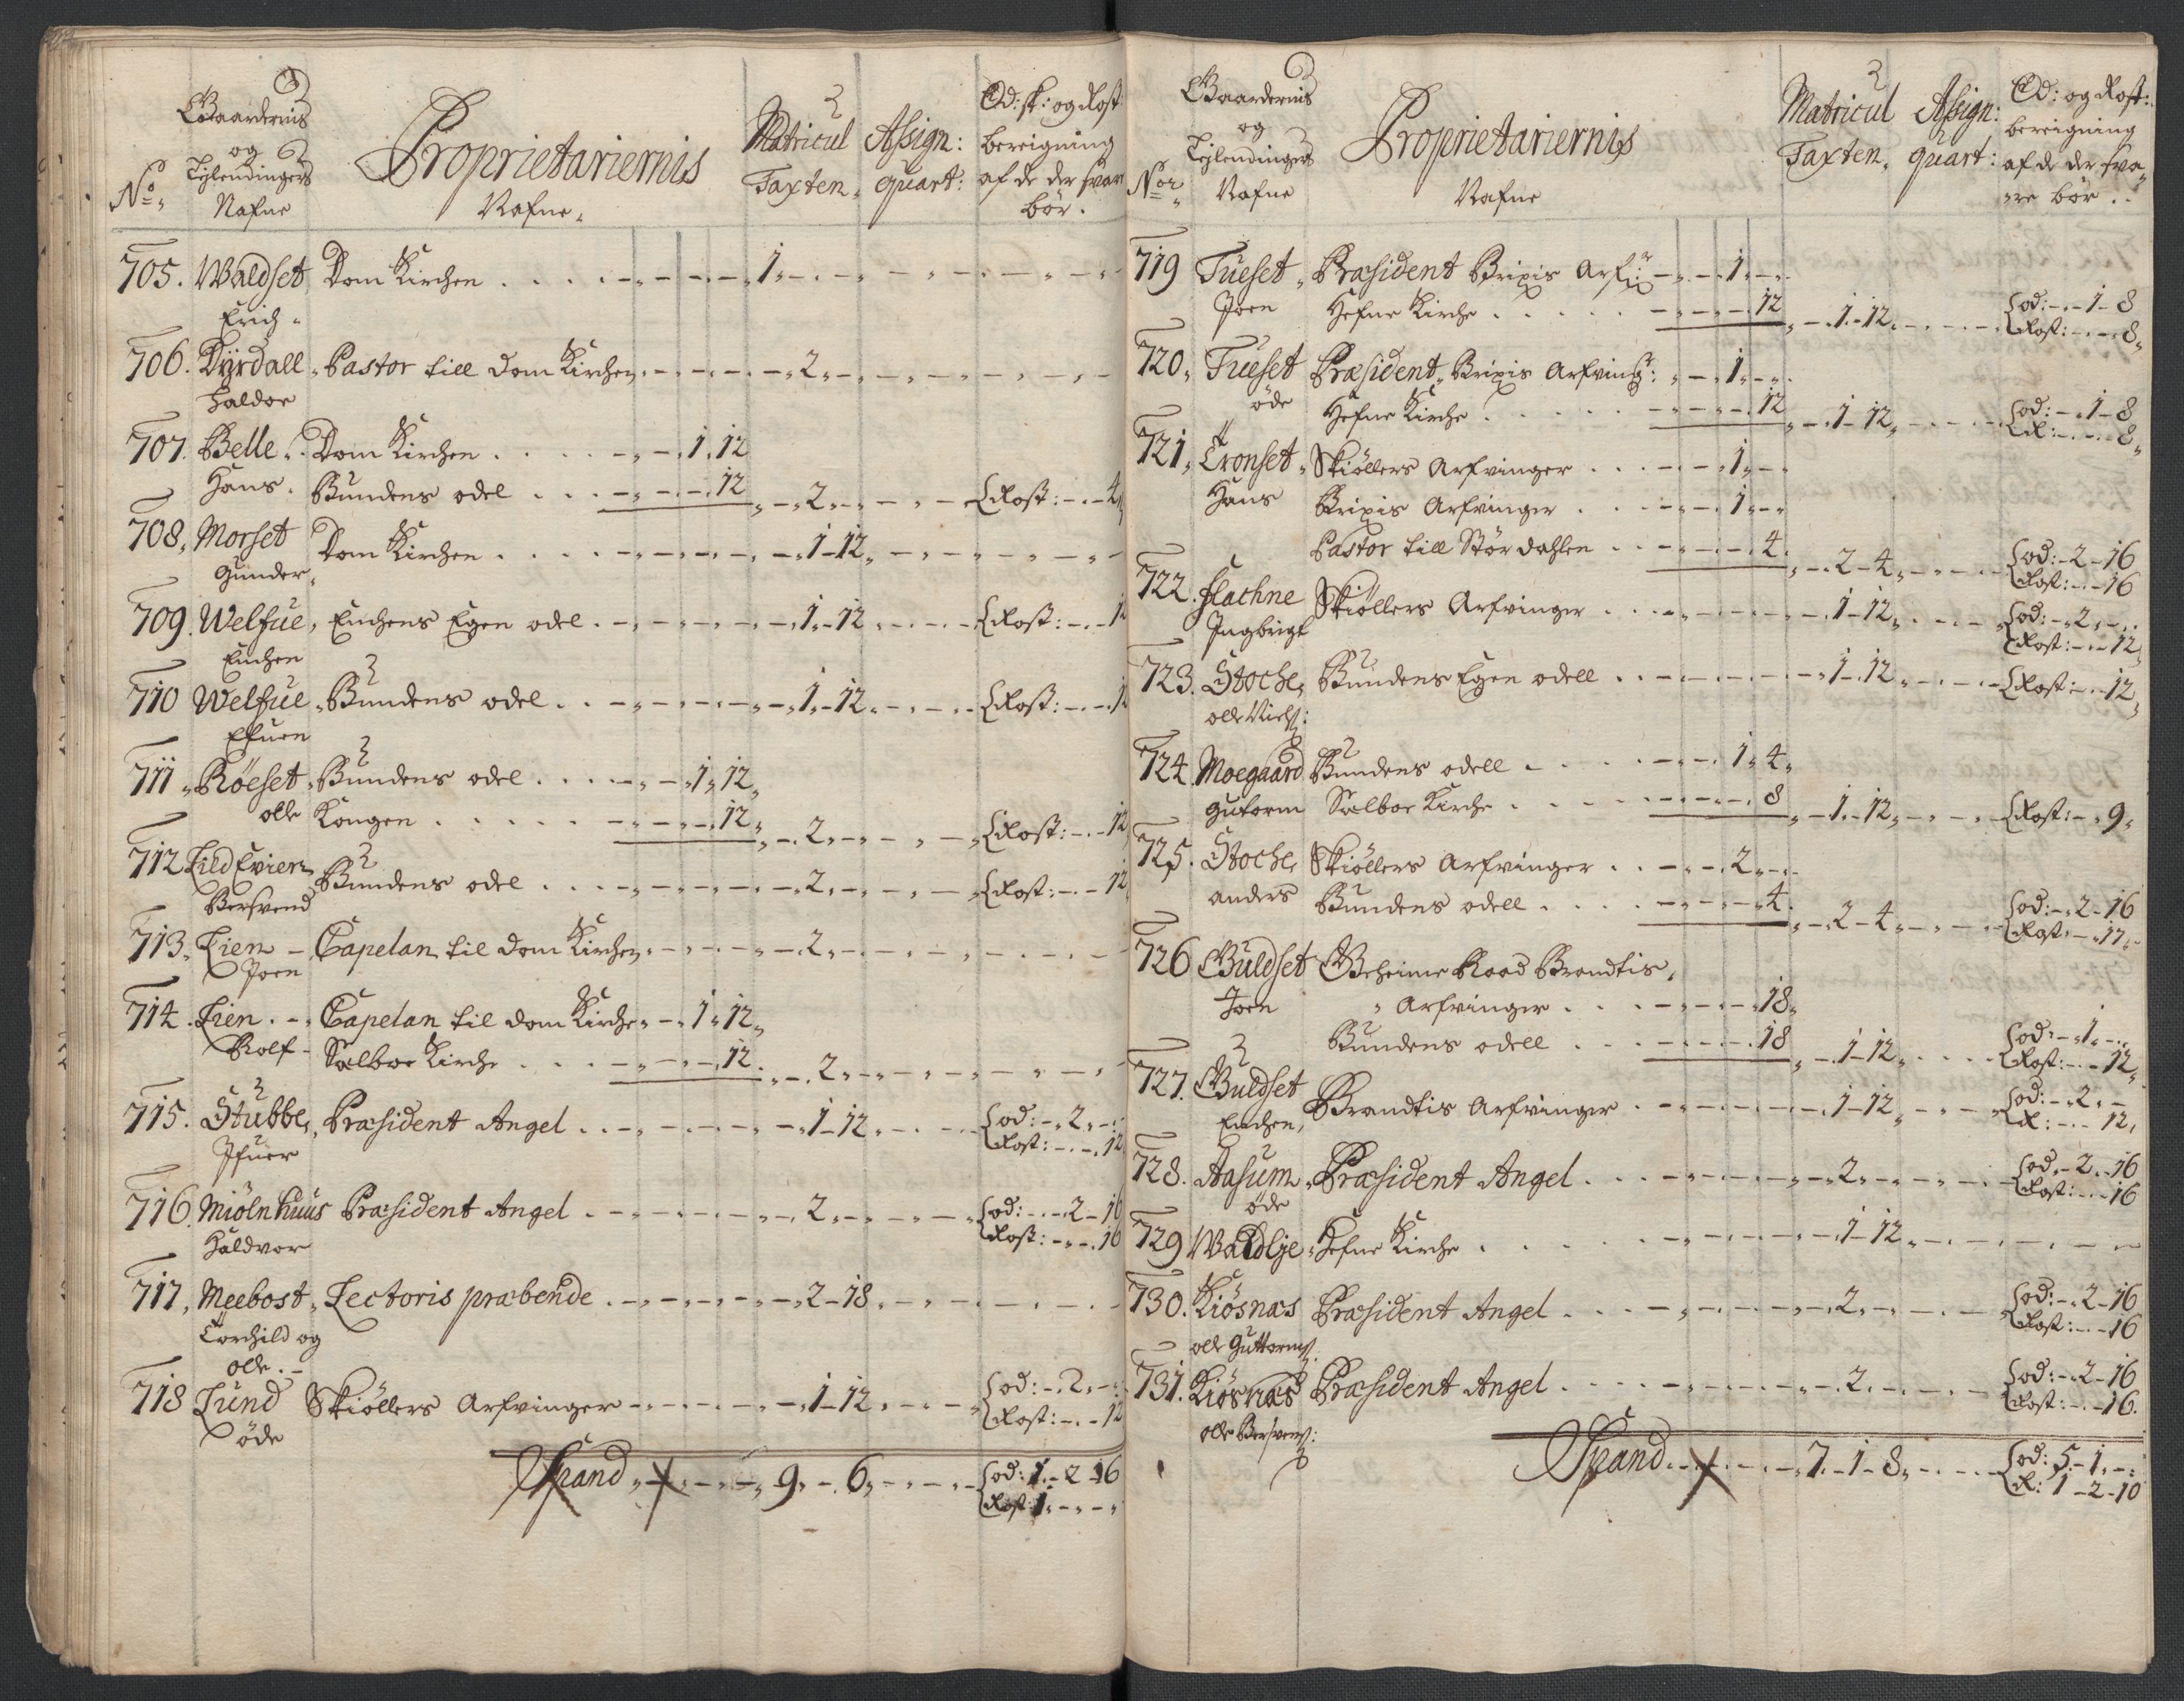 No. Gaardernis og Tejlendingers Nafne
Proprietariernis Nafne
Matricul Taxten
Assign: quart:
Od: sk: og Rost bereigning af de der svar bör.
705. Waldset Erich. Dom Kirchen . . . . 1 - -
706. Dÿrdall Haldor Pastor till Dom Kirchen - 2 - -
707. Belle Hans. Dom Kirchen . . . . 1. 12
Bundens odel . . . 12 - 2 - - Rost: - - 4
708. Morset Gunder Dom Kirchen . . . . 1 - 12
709. Welfue, Enchen Enchens Egen odel - 1 - 12 - Rost: - - 12
710 Welfue Efuen Bundens odel . . 1 - 12 - Rost: - - 12
711 Röeset olle Bundens odel . . . 1. 12
Kongen . . . . . 12 - 2 - - Rost: - - 12
712. Lild Evien Bersvend Bundens odel . . . 2 - - Rost: - - 12
713. Lien Joen Capelan til Dom Kirchen - 2 - -
714. Lien Rolf Capelan til Dom Kirche - 1. 12
Sælboe Kirche . . . 12. - 2 - -
715. Stubbe, Ifuer Præsident Angel . . 1 - 12 - Lod: - 2 - -
Rost: - - 12
716. Miölnhuus Haldvor Præsident Angel . 2 - - Lod: - 2 - 16
Rost: - - 16
717. Meebost Torchild og olle. Lectoris præbende . 2 - 18
718 Lund öde Skiöllers Arfvinger - 1 - 12 - Lod: - 2 - -
Rost: - - 12
Spand - 9 - 6 - Lod: 1 - 2 - 16
Rost: 1 - - -
No. Gaardernis og Tejlendingers Nafne
Proprietariernis Nafne
Matricul Taxten
Assign: quart:
Od: og Rost: bereigning af de der sva-re bör.
719 Tueset Joen Præsident Brixis Arf: - 1 - -
Hefne Kirche . . . . 12 - 1 - 12 - Lod: - 1 - 8
Rost: - - 8
720, Tueset öde Præsident Brixis Arfving: - 1 - -
Hefne Kirche . . . . 12 - 1 - 12 - Lod: - 1 - 8
R: - - 8
721, Tronset Hans Skiöllers Arfvinger . . . 1 - -
Brixis Arfvinger . . . 1 - -
Pastor till Stördahlen . . 4. - 2 - 4 - Lod: - 2 - 16
Rost: - - 16
722. Flachne Ingbrigt Skiöllers Arfvinger . . 1 - 12 - Lod: - 2 - -
Rost: - - 12
723. Stoche, olle Niels: Bundens Egen odell . . 1 - 12 - Rost: - - 12
724. Moegaard Gutorm Bundens odell . . . 1. 4
Sælboe Kirche . . . . 8 - 1 - 12 - Rost: - - 9
725. Stoche, anders Skiöllers Arfvinger . . 2 - -
Bundens odell . . . . 4. - 2 - 4 - Lod: - 2 - 16
Rost: - - 17
726 Guldset Joen Geheime Raad Brandtis
Arfvinger . . . 18
Bundens odell . . . 18 - 1 - 12 - Lod: - 1 - -
Rost: - - 12
727. Guldset Enchen, Brandtis Arfvinger . 1 - 12 - Lod: - 2 - -
R: - - 12
728. Aasum öde Præsident Angel . . . 2 - - Lod: - 2 - 16
Rost: - - 16
729 Waldlje Hefne Kirche . . . . 1 - 12
730. Kiösnæs olle Guttorms: Præsident Angel . . . 2 - - Lod: - 2 - 16
Rost: - - 16
731. Kiösnæs olle Bersvens: Præsident Angel . . . 2 - - Lod: - 2 - 16
Rost: - - 16.
Spand - 7 - 1 - 8 - Lod: 5 - 1 - -
R: 1 - 2 - 10